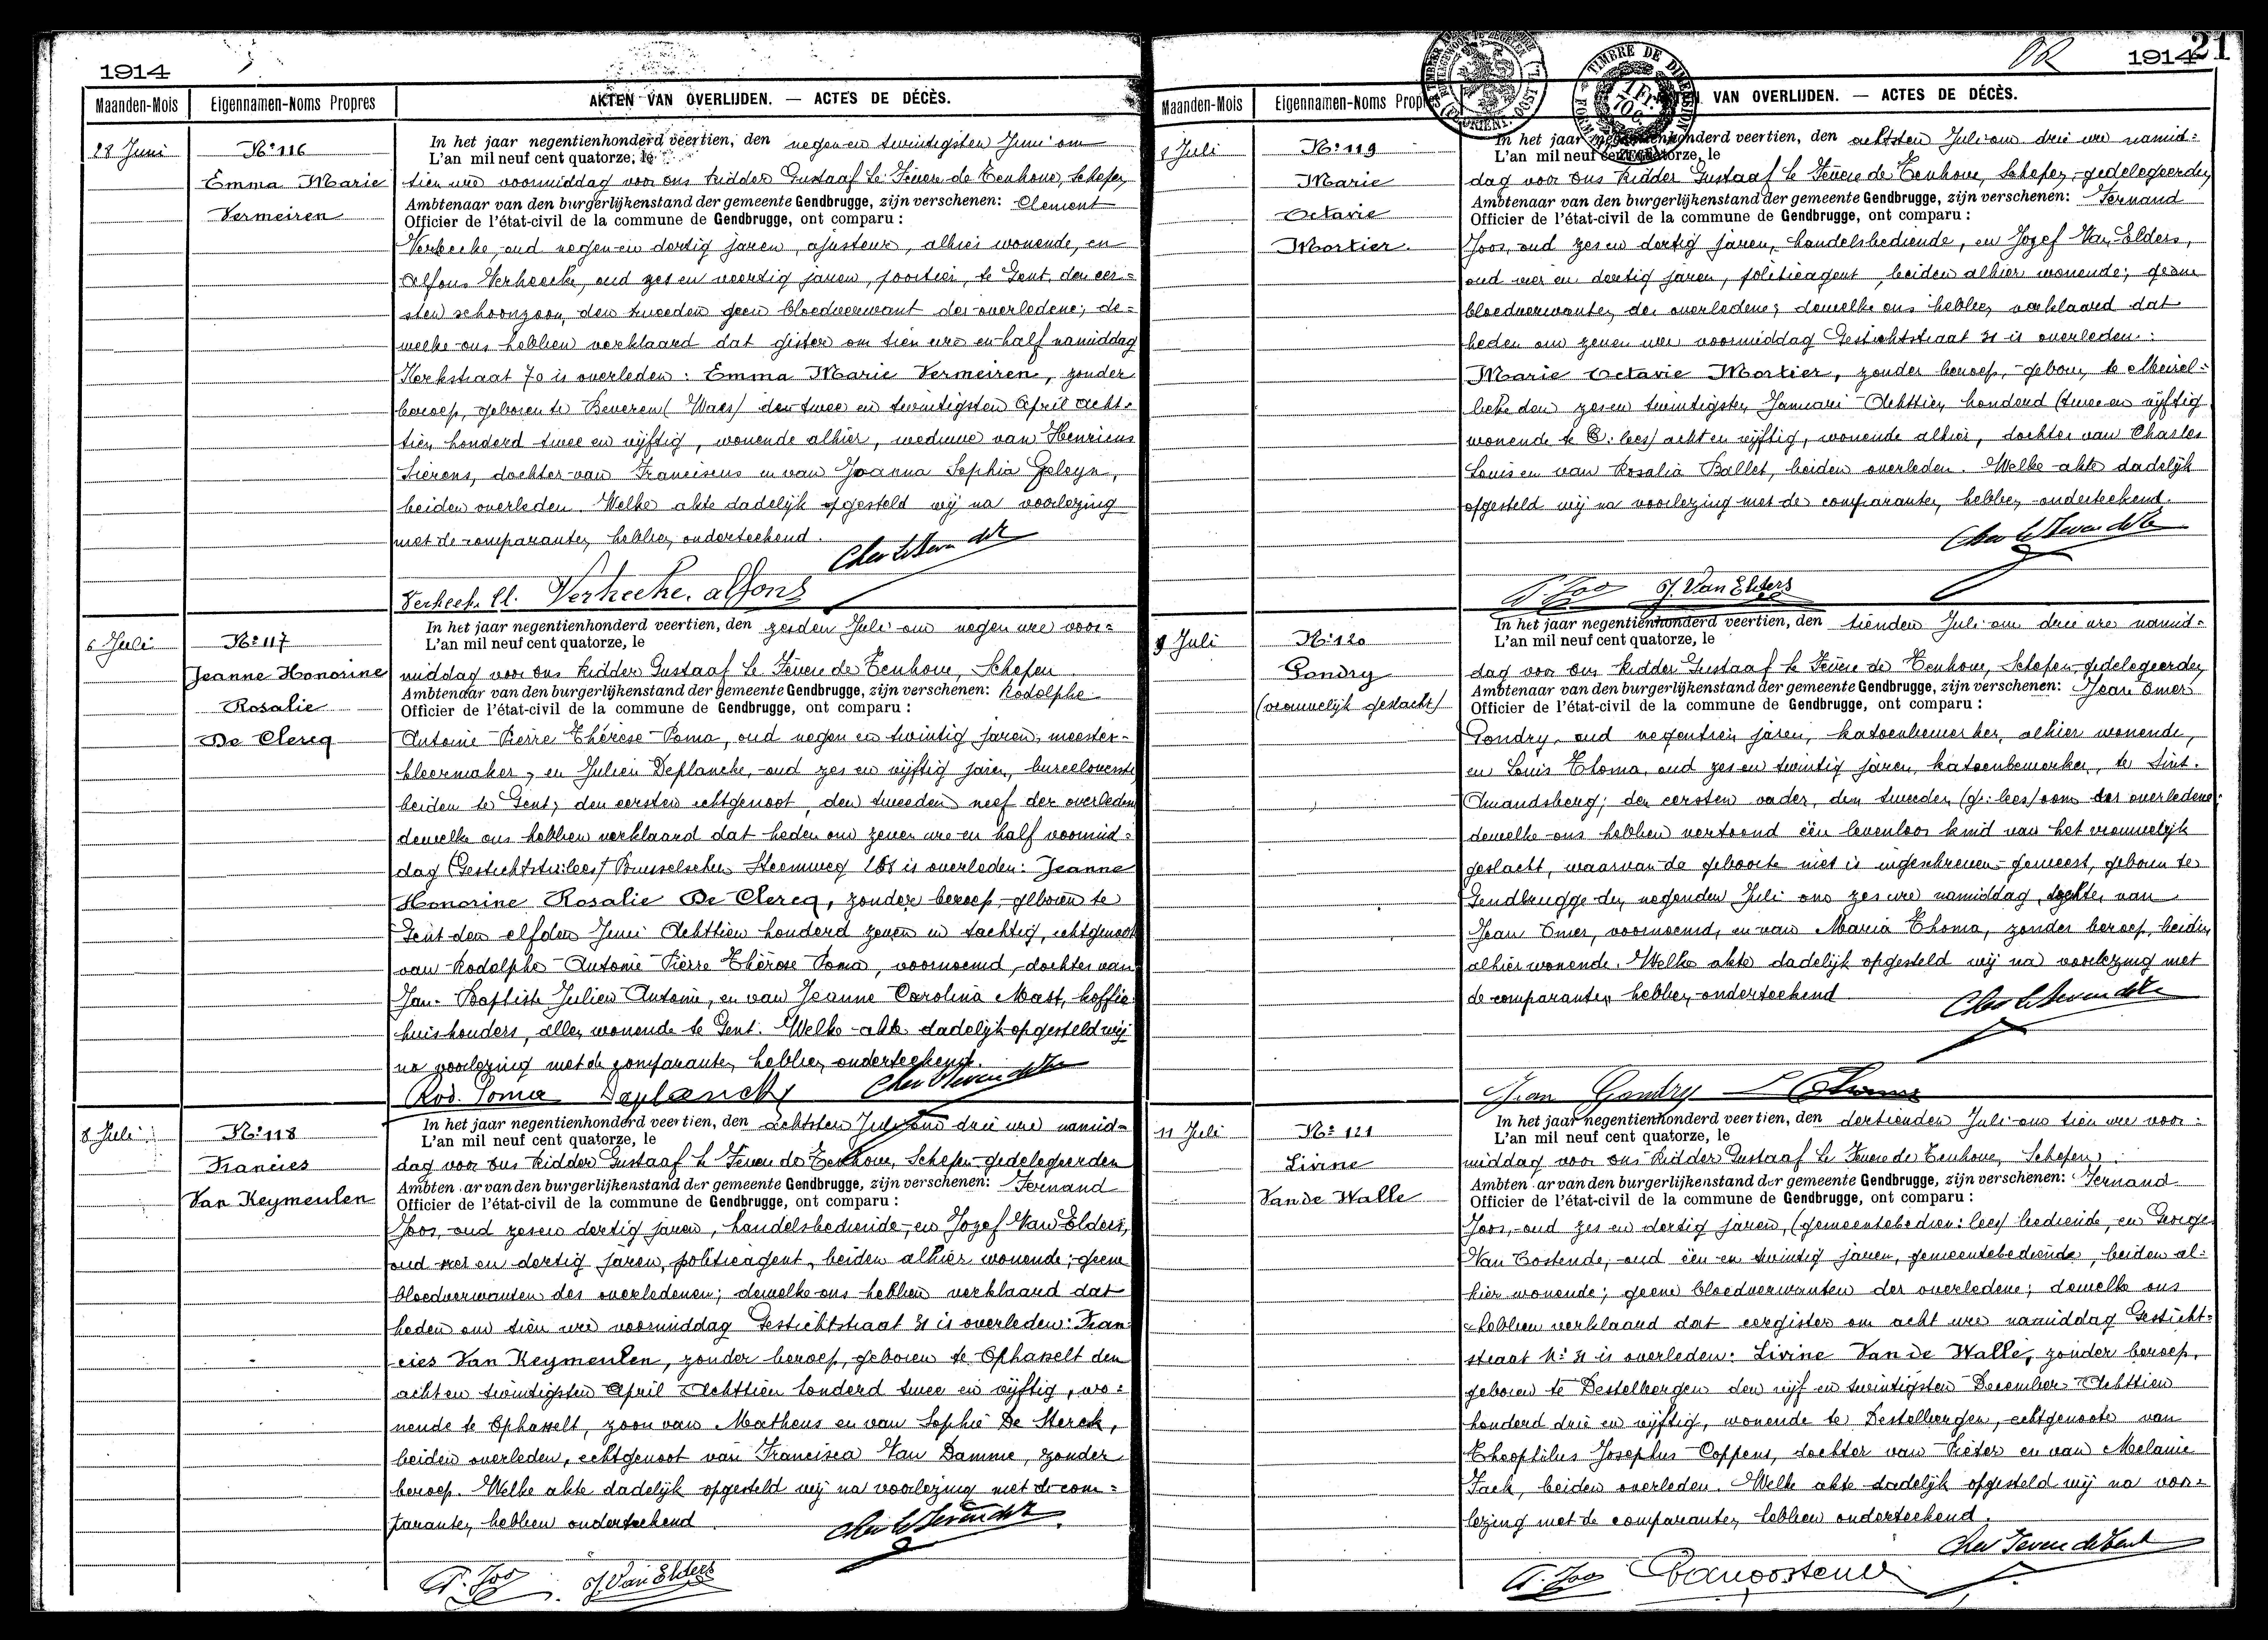 1914
Maanden-Mois Eigennamen-Noms Propres AKTEN VAN OVERLIJDEN. — ACTES DE DÉCÈS.
28 Juni
N° 116
Emma Marie
Vermeiren
In het jaar negentienhonderd veertien, den negen en twintigsten Juni om
L'an mil neuf cent quatorze, le
tien ure voormiddag voor ons Ridder Gustaaf Le Fevere de Tenhove, Schepen
Ambtenaar van den burgerlijkenstand der gemeente Gendbrugge, zijn verschenen: Clement
Officier de l'état-civil de la commune de Gendbrugge, ont comparu :
Verheeke, oud negen en dertig jaren, ajusteur, alhier wonende, en
Alfons Verheecke, oud zes en veertig jaren, poortier, te Gent, den eer=
sten schoonzoon, den tweeden geen bloedverwant der overledene; de=
welke ons hebben verklaard dat gister om tien ure en half namiddag
Kerkstraat 70 is overleden : Emma Marie Vermeiren, zonder
beroep, geboren te Beveren (Waes) den twee en twintigsten April acht=
tien honderd twee en vijftig, wonende alhier, weduwe van Henricus
Sierens, dochter van Franciscus en van Joanna Sophia Geleyn,
beiden overleden. Welke akte dadelijk opgesteld wij na voorlezing
met de comparanten hebben onderteekend.
Verheeke Cl. Verheeke. alfons
6 Juli
N° 117
Jeanne Honorine
Rosalie
De Clercq
In het jaar negentienhonderd veertien, den zesden Juli om negen ure voor=
L'an mil neuf cent quatorze, le
middag voor ons Ridder Gustaaf Le Fevere de Tenhove, Schepen
Ambtenaar van den burgerlijkenstand der gemeente Gendbrugge, zijn verschenen: Rodolphe
Officier de l'état-civil de la commune de Gendbrugge, ont comparu :
Antoine Pierre Thérèse Poma, oud negen en twintig jaren, meester-
kleermaker, en Julien Deplancke, oud zes en vijftig jaren, bureeloverste
beiden te Gent; den eersten echtgenoot, den tweeden neef der overledene
dewelke ons hebben verklaard dat heden om zeven ure en half voormid=
dag (Gestichtstr: lees) Brusselschen Steenweg 168 is overleden: Jeanne
Honorine Rosalie De Clercq, zonder beroep, geboren te
Gent den elfden Juni Achttien honderd zeven en tachtig, echtgenoot
van Rodolphe Antoine Pierre Thérèse Poma, voornoemd, dochter van
Jan-Baptiste Julien Antoine, en van Jeanne Carolina Mast, koffie
huishouders, allen wonende te Gent. Welke akte dadelijk opgesteld wij
na voorlezing met de comparanten hebben onderteekend.
Rod. Poma Deplancke
8 Juli
N° 118
Francies
Van Keymeulen
In het jaar negentienhonderd veertien, den achtsten Juli om drie ure namid=
L'an mil neuf cent quatorze, le
dag voor ons Ridder Gustaaf Le Fevere de Tenhove, Schepen-gedelegeerden
Ambtenaar van den burgerlijkenstand der gemeente Gendbrugge, zijn verschenen: Fernand
Officier de l'état-civil de la commune de Gendbrugge, ont comparu :
Joos, oud zes en dertig jaren, handelsbediende, en Jozef Van Elders,
oud vier en dertig jaren, politieagent, beiden alhier wonende; geene
bloedverwanten des overledenen; dewelke ons hebben verklaard dat
heden om tien ure voormiddag Gestichtstraat 31 is overleden: Fran
cies Van Keymeulen, zonder beroep, geboren te Ophasselt den
acht en twintigsten April Achttien honderd twee en vijftig, wo=
nende te Ophasselt, zoon van Matheus en van Sophie De Sterck,
beiden overleden, echtgenoot van Francisca Van Damme, zonder
beroep. Welke akte dadelijk opgesteld wij na voorlezing met de com=
paranten hebben onderteekend
F. Joos J. Van Elders
1914 21
TIMBRE DE DIMENSION
1 Fr.
70 c.
Maanden-Mois Eigennamen-Noms Propres AKTEN VAN OVERLIJDEN. — ACTES DE DÉCÈS.
8 Juli
N° 119
Marie
Octavie
Mortier.
In het jaar negentienhonderd veertien, den achtsten Juli om drie ure namid=
L'an mil neuf cent quatorze, le
dag voor ons Ridder Gustaaf Le Fevere de Tenhove, Schepen-gedelegeerden
Ambtenaar van den burgerlijkenstand der gemeente Gendbrugge, zijn verschenen: Fernand
Officier de l'état-civil de la commune de Gendbrugge, ont comparu :
Joos, oud zes en dertig jaren, handelsbediende, en Jozef Van Elders,
oud vier en dertig jaren, politieagent, beiden alhier wonende; geene
bloedverwanten der overledene; dewelke ons hebben verklaard dat
heden om zeven ure voormiddag Gestichtstraat 31 is overleden:
Marie Octavie Mortier, zonder beroep, geboren te Meirel=
beke den zes en twintigsten Januari Achttien honderd (twee en vijftig
wonende te G: lees) acht en vijftig, wonende alhier, dochter van Charles
Louis en van Rosalia Ballet, beiden overleden. Welke akte dadelijk
opgesteld wij na voorlezing met de comparanten hebben onderteekend.
F. Joos J. Van Elders
9 Juli
N° 120
Gondry
(vrouwelijk geslacht)
In het jaar negentienhonderd veertien, den tienden Juli om drie ure namid=
L'an mil neuf cent quatorze, le
dag voor ons Ridder Gustaaf Le Fevere de Tenhove, Schepen-gedelegeerden
Ambtenaar van den burgerlijkenstand der gemeente Gendbrugge, zijn verschenen: Jean Omer
Officier de l'état-civil de la commune de Gendbrugge, ont comparu :
Gondry, oud negentien jaren, katoenbewerker, alhier wonende,
en Louis Thoma, oud zes en twintig jaren, katoenbewerker, te Sint-
Amandsberg; den eersten vader, den tweeden (gr: lees) oom der overledene;
dewelke ons hebben vertoond één levenloos kind van het vrouwelijk
geslacht, waarvan de geboorte niet is ingeschreven geweest, geboren te
Gendbrugge den negenden Juli om zes ure namiddag, dochter van
Jean Omer, voornoemd, en van Maria Thoma, zonder beroep, beiden
alhier wonende. Welke akte dadelijk opgesteld wij na voorlezing met
de comparanten hebben onderteekend
Jean Gondry L Thoma
11 Juli
N° 121
Livine
Van de Walle
In het jaar negentienhonderd veertien, den dertienden Juli om tien ure voor=
L'an mil neuf cent quatorze, le
middag voor ons Ridder Gustaaf Le Fevere de Tenhove, Schepen
Ambtenaar van den burgerlijkenstand der gemeente Gendbrugge, zijn verschenen: Fernand
Officier de l'état-civil de la commune de Gendbrugge, ont comparu :
Joos, oud zes en dertig jaren, (gemeentebedien: lees) bediende, en George
Van Oostende, oud één en twintig jaren, gemeentebediende, beiden al=
hier wonende; geene bloedverwanten der overledene; dewelke ons
hebben verklaard dat eergister om acht ure namiddag Gesticht=
straat N° 31 is overleden: Livine Van de Walle, zonder beroep,
geboren te Destelbergen den vijf en twintigsten December Achttien
honderd drie en vijftig, wonende te Destelbergen, echtgenoote van
Theophilus Josephus Coppens, dochter van Pieter en van Melanie
Fack, beiden overleden. Welke akte dadelijk opgesteld wij na voor=
lezing met de comparanten hebben onderteekend.
F. Joos G Vanoostende